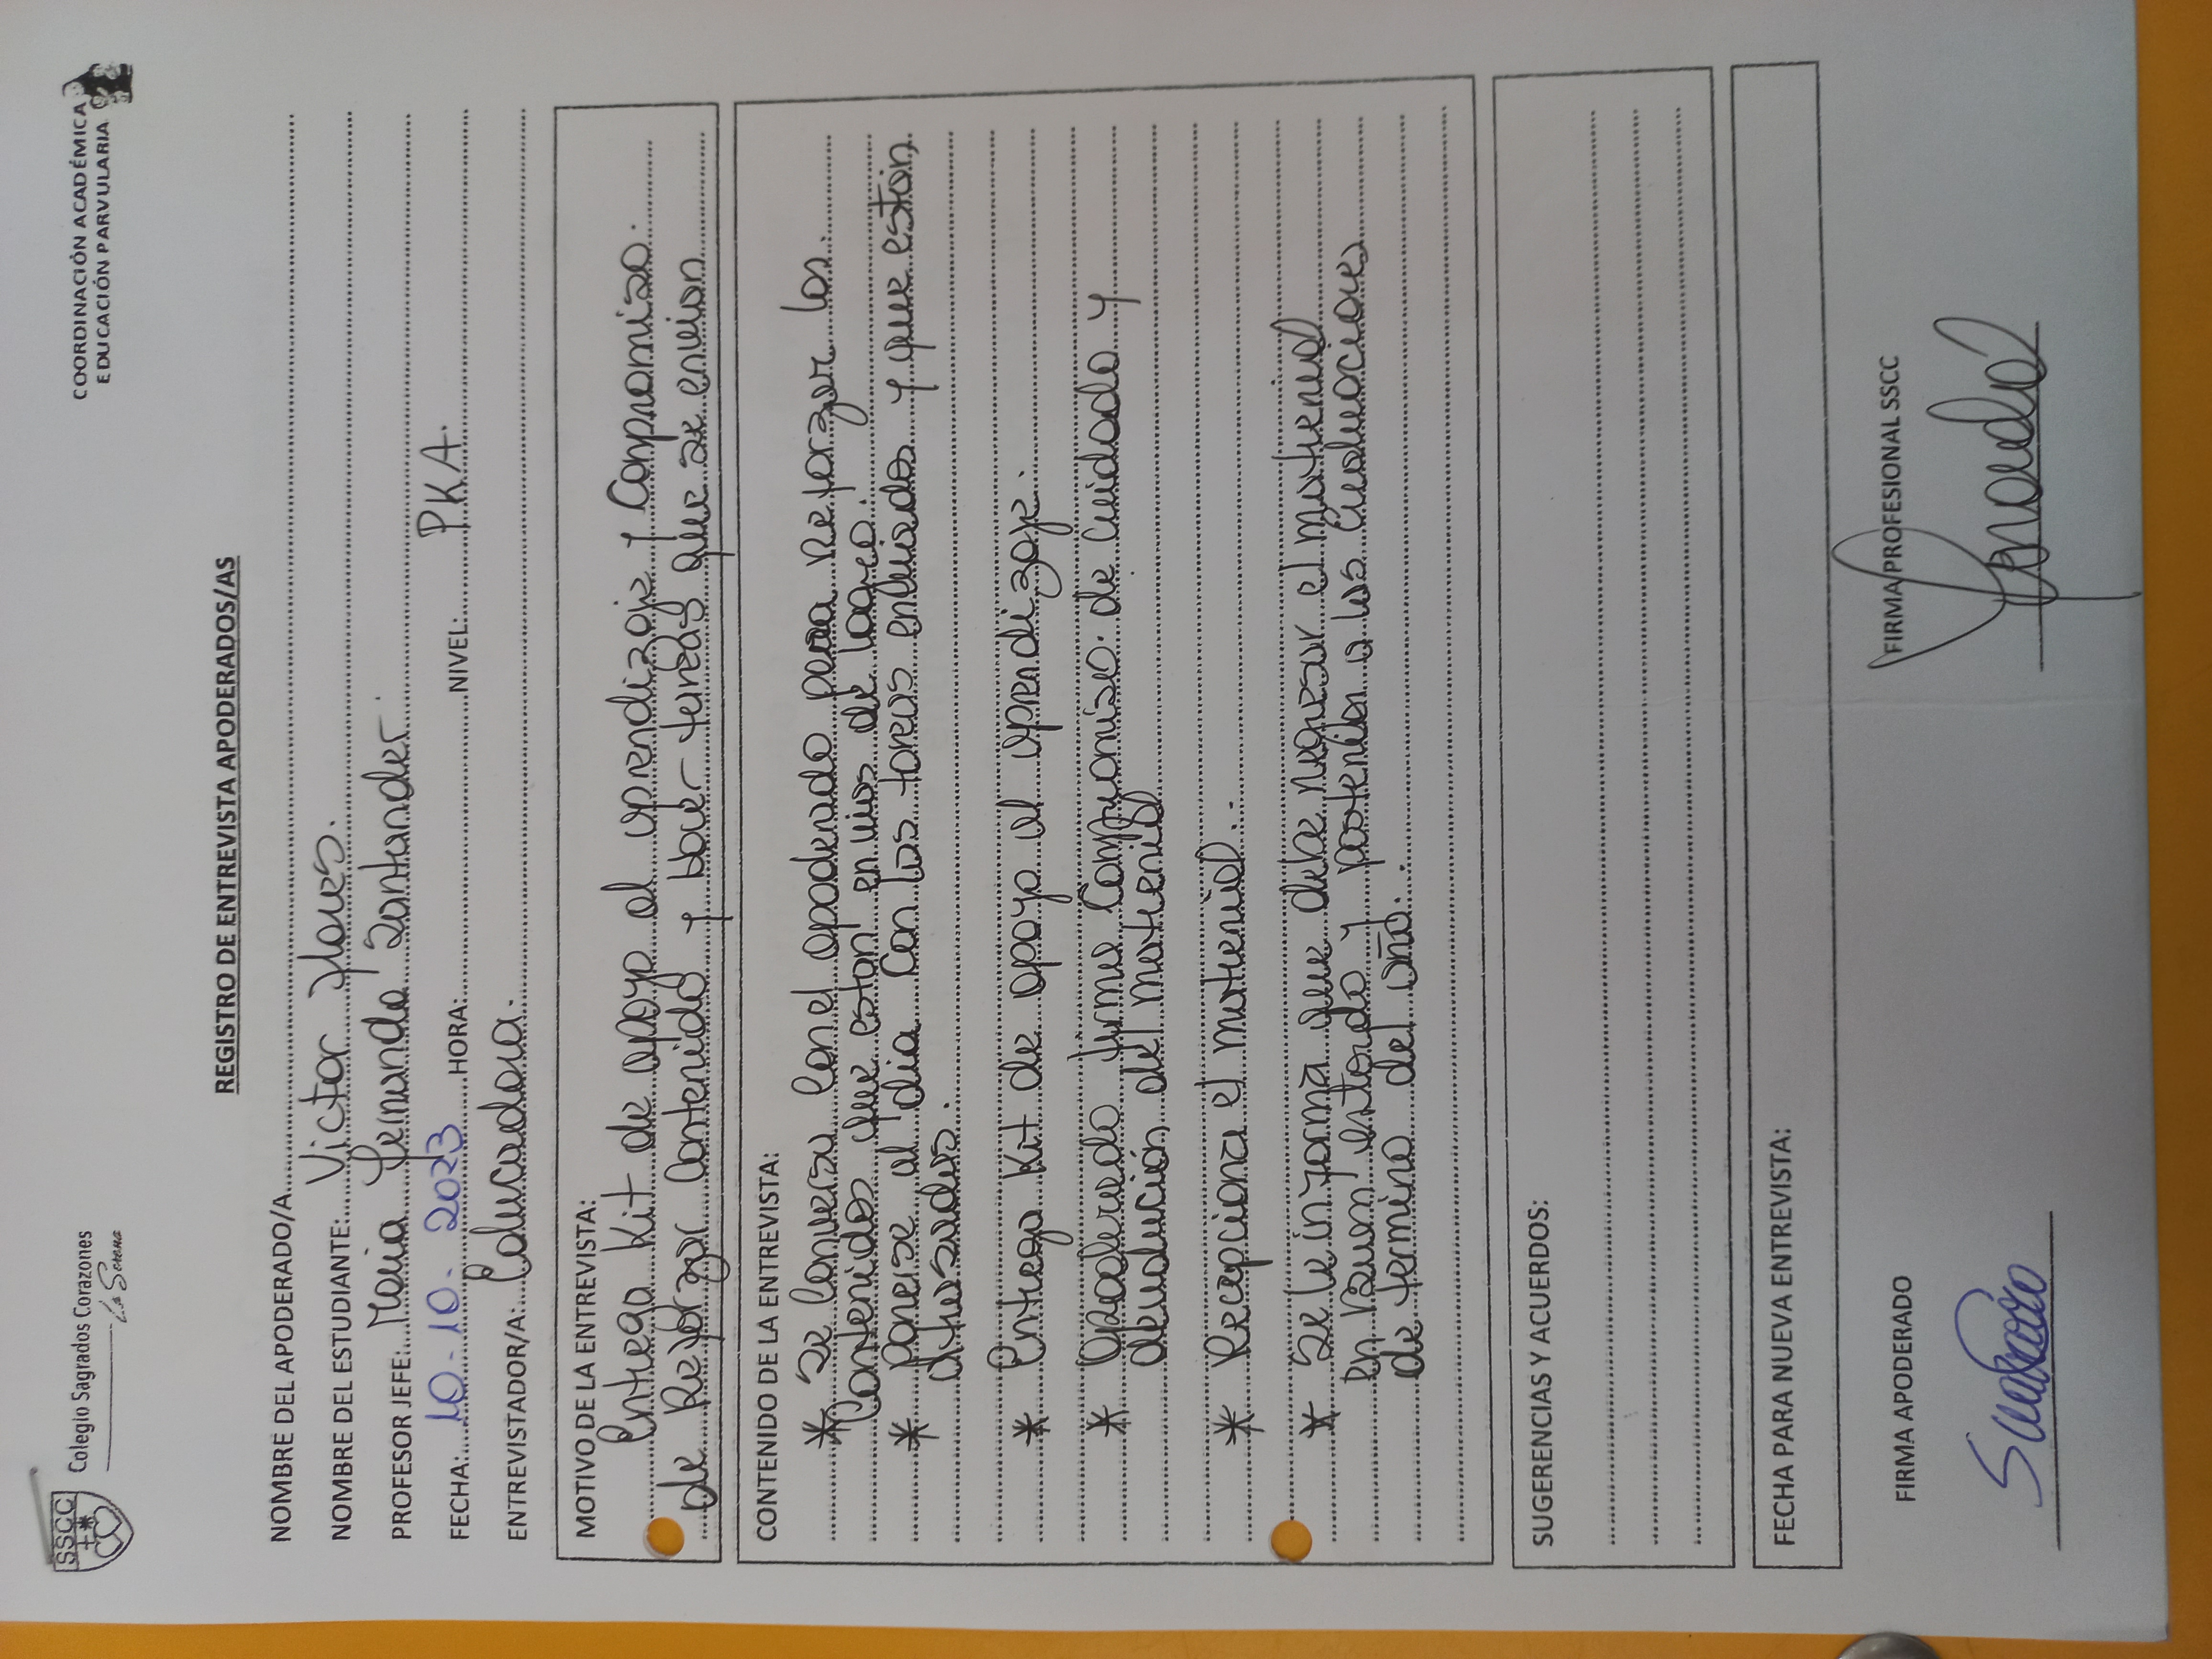 SSCC
Colegio Sagrados Corazones
La Serena
COORDINACIÓN ACADÉMICA
EDUCACIÓN PARVULARIA
REGISTRO DE ENTREVISTA APODERADOS/AS
NOMBRE DEL APODERADO/A
NOMBRE DEL ESTUDIANTE: Victor
PROFESOR JEFE: Maria Fernanda Santander
FECHA: 10-10-2023 HORA: NIVEL: PKA.
ENTREVISTADOR/A: Educadora.
MOTIVO DE LA ENTREVISTA:
Entrega Kit de apoyo al aprendizaje y Compromiso.
de Reforzar contenido y hacer tareas que se envian
CONTENIDO DE LA ENTREVISTA:
* Se conversa con el apoderado para Reforzar los
Contenidos que estan en vias de logro.
* Ponerse al dia con las tareas enviadas y que estan
atrasadas.
* Entrega Kit de apoyo al aprendizaje.
* Apoderado firma Compromiso de cuidado y
devolución del material
* Recepciona el material.
* Se le informa que debe regresar el material
en Buen estado y ponerlo a las Evaluaciones
de termino del año.
SUGERENCIAS Y ACUERDOS:
FECHA PARA NUEVA ENTREVISTA:
FIRMA APODERADO
FIRMA PROFESIONAL SSCC